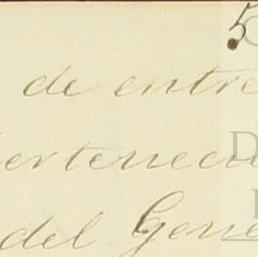 5
de entre
ertenecie
del Gene